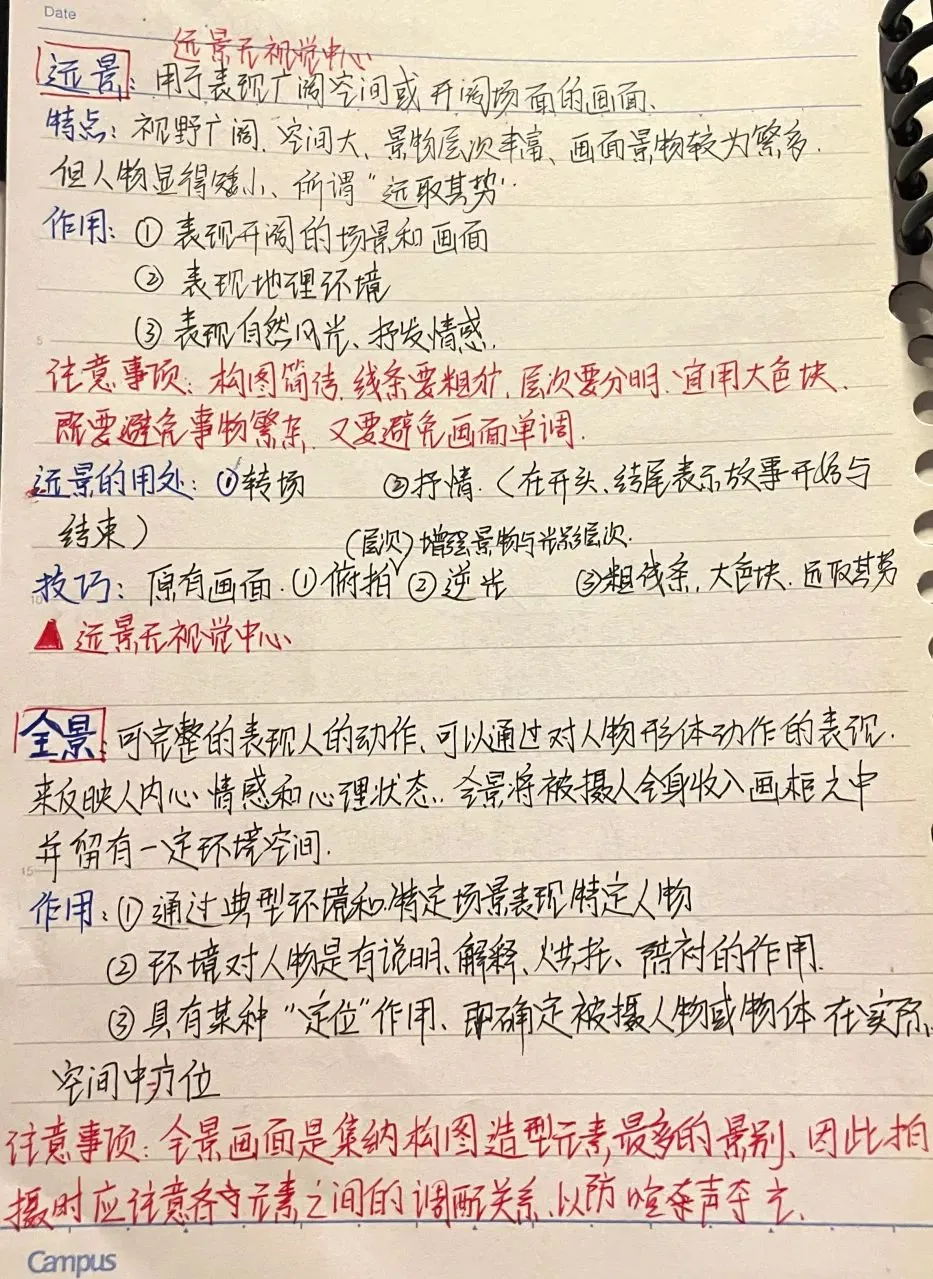 Date
远景无视觉中心
远景：用于表现广阔空间或开阔场面的画面、
特点：视野广阔、空间大、景物层次丰富、画面景物较为繁多.
但人物显得矮小、所谓“远取其势”
作用：① 表现开阔的场景和画面
② 表现地理环境
③ 表现自然风光、抒发情感.
5
注意事项：构图简洁，线条要粗犷，层次要分明，宜用大色块.
既要避免事物繁杂，又要避免画面单调.
远景的用处：①转场 ②抒情.（在开头、结尾表示故事开始与
结束）
（层次）增强景物与光影层次.
技巧：原有画面.①俯拍 ②逆光 ③粗线条，大色块.远取其势
10
▲ 远景无视觉中心
全景：可完整的表现人的动作、可以通过对人物形体动作的表现.
来反映人内心情感和心理状态..全景将被摄人全身收入画框之中
并留有一定环境空间.
15
作用：①通过典型环境和特定场景表现特定人物
②环境对人物是有说明、解释、烘托、陪衬的作用.
③具有某种“定位”作用、即确定被摄人物或物体在实际
空间中方位
注意事项：全景画面是集纳构图造型元素最多的景别、因此拍
摄时应注意各元素之间的调配关系，以防喧宾夺主、
Campus